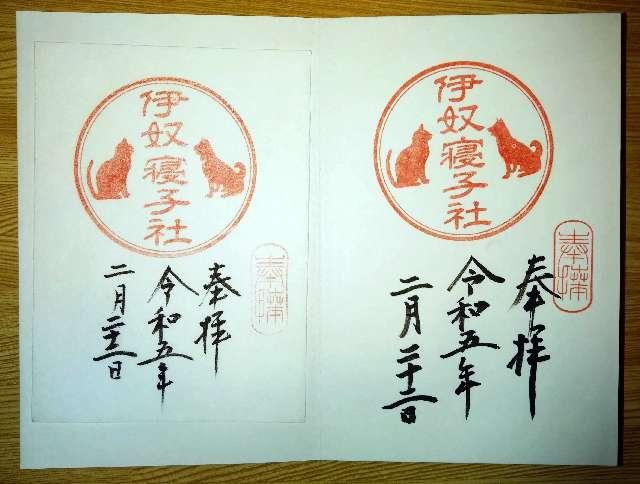 伊奴寝子社
奉拝
奉拝
令和五年
二月二十二日
伊奴寝子社
奉拝
奉拝
令和五年
二月二十二日